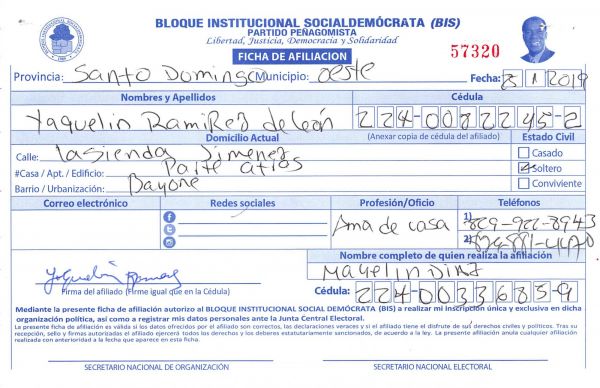 BLOQUE INSTITUCIONAL SOCIALDEMÓCRATA (BIS)
PARTIDO PEÑAGOMISTA
Libertad, Justicia, Democracia y Solidaridad
FICHA DE AFILIACION
57320
Provincia: Santo Domingo Municipio: oeste Fecha: 8 1 2019
Nombres y Apellidos Cédula
Yaquelin Ramirez de León 224-0082245-2
Domicilio Actual (Anexar copia de cédula del afiliado) Estado Civil
Calle: Lasienda Jimenez Casado
#Casa / Apt. / Edificio: Parte atras Soltero
Barrio / Urbanización: Bayona Conviviente
Correo electrónico Redes sociales Profesión/Oficio Teléfonos
Ama de casa 1) 829-922-8943
2)
Nombre completo de quien realiza la afiliación
Mayelin Diaz
Firma del afiliado (Firme igual que en la Cédula) Cédula: 224-0033685-9
Mediante la presente ficha de afiliación autorizo al BLOQUE INSTITUCIONAL SOCIAL DEMÓCRATA (BIS) a realizar mi inscripción única y exclusiva en dicha
organización política, así como a registrar mis datos personales ante la Junta Central Electoral.
La presente ficha de afiliación es válida si los datos ofrecidos por el afiliado son correctos, las declaraciones veraces y si el afiliado tiene el disfrute de sus derechos civiles y políticos. Tras su
recepción, sello y firmas autorizadas el afiliado ejercerá todos los derechos y los deberes estatutariamente sancionados, de acuerdo a la ley. La presente afiliación anula cualquier afiliación
realizada con anterioridad a la fecha que aparece en esta ficha.
SECRETARIO NACIONAL DE ORGANIZACIÓN SECRETARIO NACIONAL ELECTORAL